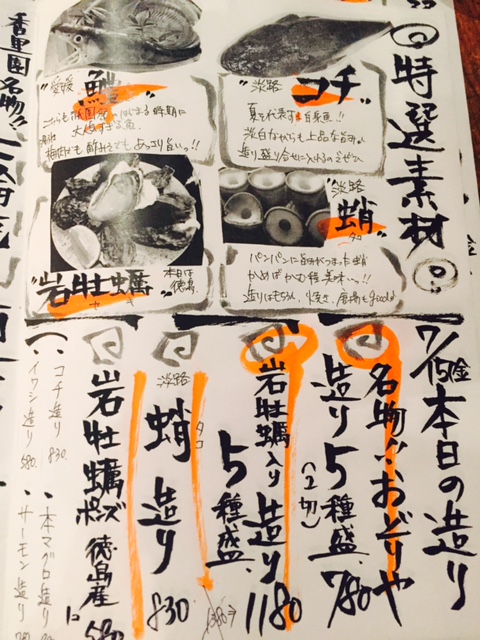 特選素材
淡路
コチ
夏を代表する白身魚!!
淡白ながらも上品な旨み。
造り盛り合せに入れるのもぜひ
愛媛
鱧
大活やくする魚。
淡路
蛸
タコ
パンパンに旨みがつまった蛸
かめばかむ程美味いっ!!
造りはもちろん、焼き、唐揚もgood
岩牡蠣
カキ
本日は
徳島
香里園名物!!
7/15(金)本日の造り
名物!!おどりや
造り5種盛
(2切)
780
岩牡蠣入り造り
5種盛
1180
淡路
蛸造り
タコ
830
岩牡蠣ポン酢
徳島産
1コ
580
・コチ造り 830
・イワシ造り 580
・本マグロ造り
・サーモン造り